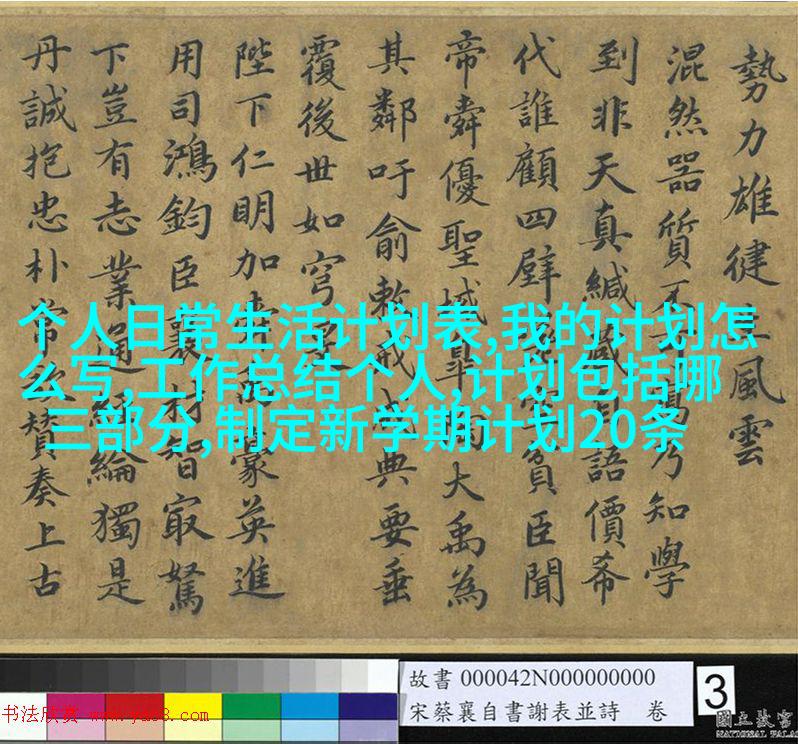 勢力雄健風雲
混然器質乃知學
到非天真緘語價希
代誰顧四壁貧臣聞
帝舜優聖域大禹為
其鄰吁俞敕戒典要垂
覆後世如穹
陛下仁明加豪英進
用司鴻鈞臣襄材智㝡駑
下豈有志業通經綸獨是
丹誠抱忠朴常贊奏上古
个人日常生活计划表,我的计划怎
么写,工作总结个人,计划包括哪
三部分,制定新学期计划20条
故書 000042N000000000
宋蔡襄自書謝表並詩 卷
3
书法欣赏 www.yac8.com
國立故宮
NATIONAL PALA